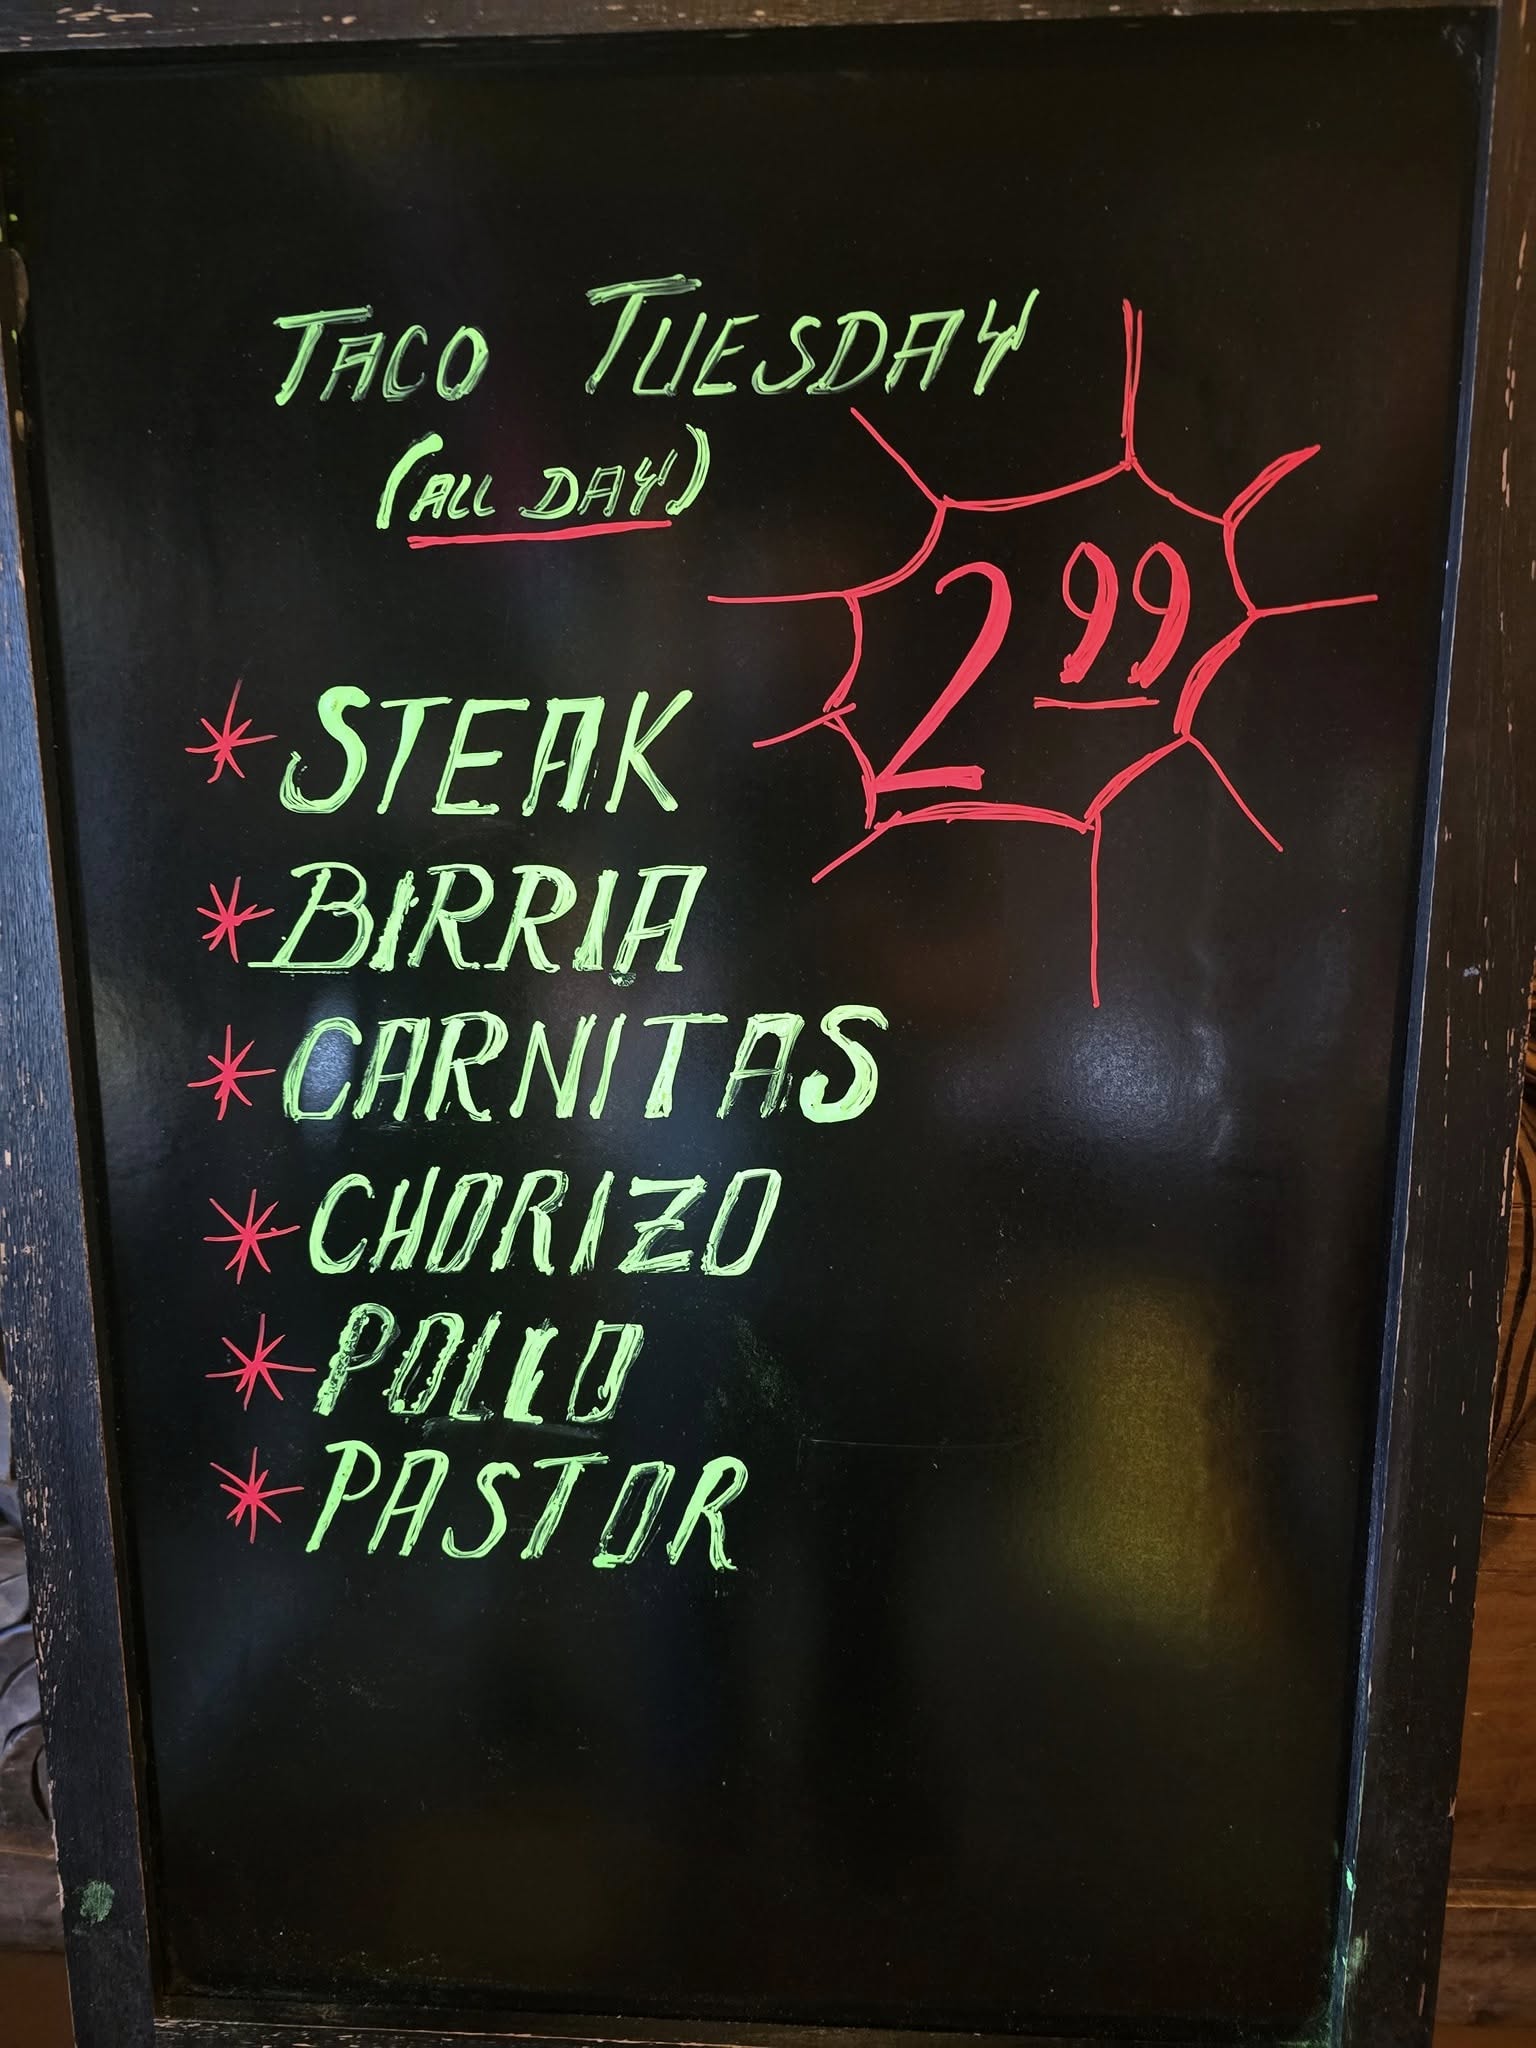 TACO TUESDAY
(ALL DAY)
2.99
* STEAK
* BIRRIA
* CARNITAS
* CHORIZO
* POLLO
* PASTOR